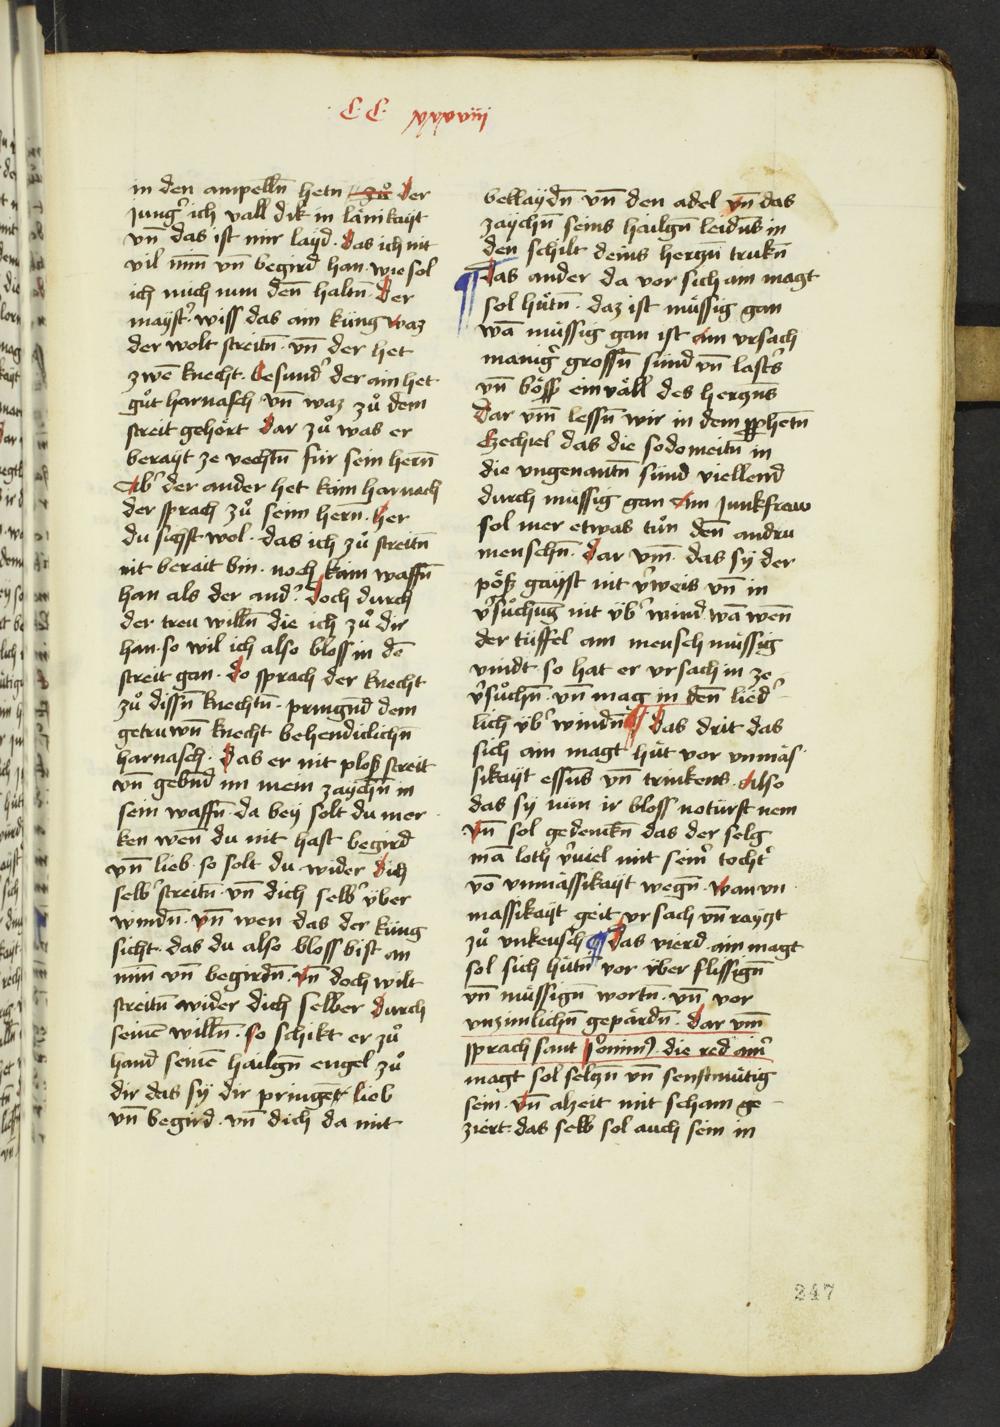 C C xxxviii
in den ampelln̄ hetn zů Der
Jungˀ ich vall dik in lämkayt
vn̄ das ist mir layd. Das ich nit
vil min̄ vn̄ begird han. wie sol
ich mich nun den̄ haltn̄. Der
maystˀ. wiss das ain küng waz
der wolt streitn̄. vn̄ der het
zwen̄ knecht. Besundˀ der ain het
gůt harnasch vn̄ waz zů dem
streit gehört Dar zů was er
berayt ze vechtn̄ für sein hern̄
Abˀ der ander het kain harnach
der sprach zů seim hern̄. Her
du sichst wol. das ich zů streitn̄
nit berait bin. noch kain waffn̄
han als der andˀ. Doch durch
der treu willn̄ die ich zů dir
han. so wil ich also bloss in dē
streit gan. Do sprach der knecht
zů dissn̄ knechtn̄. pringnd dem
getruwn̄ knecht behendiclichn̄
harnasch. Das er nit plosß streit
vn̄ gebnd im mein zaychn̄ in
sein waffn̄. da bey solt du mer
ken wen̄ du nit hast begird
vn̄ lieb. so solt du wider dich
selbˀ streitn̄. vn̄ dich selbˀ über
windn̄. vn̄ wen das der küng
sicht. das du also bloss bist an
min̄ vn̄ begirdn̄. Vn̄ doch wilt
streitn̄ wider dich selber durch
seinē willn̄. So schikt er zů
hand seinē hailgn̄ engel zů
dir das sÿ dir pringēt lieb
vn̄ begird. vn̄ dich da mit
beklaydn̄ vn̄ den adel vn̄ das
zaychn̄ seins hailgn̄ leidns in
den schilt deins herczn̄ trukn̄
¶ Das ander da vor sich ain magt
sol hütn̄. daz ist müssig gan
wā müssig gan ist ain vrsach
manigˀ grossn̄ sünd vn̄ lastˀs
vn̄ böss einväll des herczns
Dar vm̄ lessn̄ wir in dem pphetn̄
Ezechiel das die sodomeitn̄ in
die vngenantn̄ sünd viellend
durch müssig gan Ain Junkfraw
sol mer etwas tůn den̄ andru
menschn̄. Dar vm̄. das sÿ der
pöß gayst nit vˀweis vn̄ in
vˀsůchūg nit übˀ wind. wā wen̄
der tüffel ain mensch müssig
vindt so hat er vrsach in ze
vˀsůchn̄. vn̄ mag in den̄ liedˀ
lich übˀ windn̄ ¶ Das drit das
sich ain magt hüt vor vnmäs
sikayt essns vn̄ trinkens. Also
das sÿ nün ir bloss noturft nem
Vn̄ sol gedenckn̄ das der selg
mā loth vˀviel mit seinˀ tochtˀ
vō vnmässikayt wegn̄. Wan vn
massikayt geit vrsach vn̄ rayczt
zů vnkeusch ¶ Das vierd. ain magt
sol sich hütn̄ vor über flissign̄
vn̄ müssign̄ wortn̄. vn̄ vor
vnzimlichn̄ gepärdn̄. Dar vm̄
sprach sant Jeronimꝰ. die red ainˀ
magt sol selczn̄ vn̄ senftmütig
sein. Vn̄ alzeit mit scham ge
ziert. das selb sol auch sein in
247